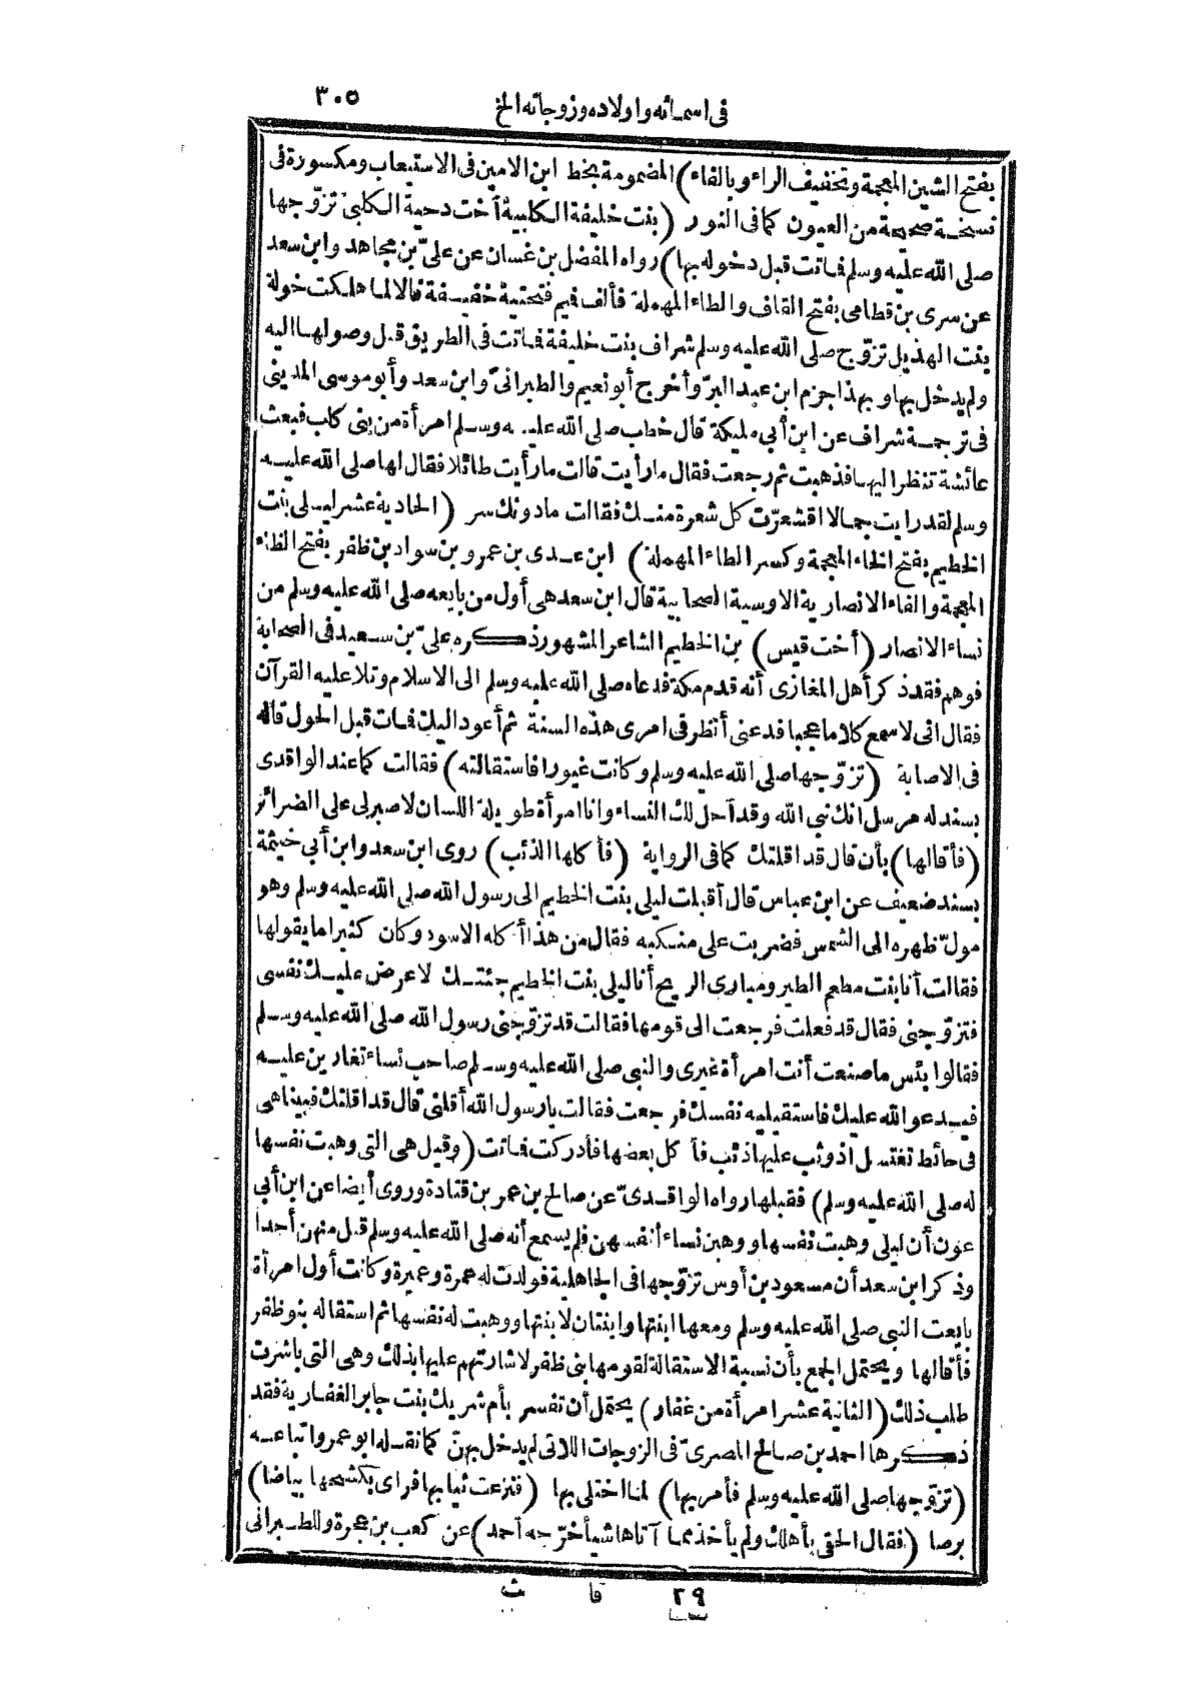 فى اسمائه واولاده وزوجاته الخ ٣٠٥
بفتح الشين المعجمة وتخفيف الراء وبالفاء) المضمومة بخط ابن الامين فى الاستيعاب ومكسورة فى
نسخة صحيحة من العيون كما فى النور (بنت خليفة الكلبية أخت دحية الكلبى تزوّجها
صلى الله عليه وسلم فماتت قبل دخوله بها) رواه المفضل بن غسان عن علىّ بن مجاهد وابن سعد
عن سرى بن قطامى بفتح القاف والطاء المهملة فألف فميم فتحتية خفيفة قالا لما هلكت خولة
بنت الهذيل تزوّج صلى الله عليه وسلم شراف بنت خليفة فماتت فى الطريق قبل وصولها اليه
ولم يدخل بها وبهذا جزم ابن عبد البرّ وأخرج أبو نعيم والطبرانىّ وابن سعد وأبو موسى المدينى
فى ترجمة شراف عن ابن أبى مليكة قال خطب صلى الله عليه وسلم امرأة من بنى كلب فبعث
عائشة تنظر اليها فذهبت ثم رجعت فقال ما رأيت قالت ما رأيت طائلا فقال لها صلى الله عليه
وسلم لقد رايت جمالا اقشعرّت كل شعرة منك فقالت ما دونك سر (الحادية عشر ليلى بنت
الخطيم بفتح الخاء المعجمة وكسر الطاء المهملة) ابن عدى بن عمرو بن سواد بن ظفر بفتح الظاء
المعجمة والفاء الانصارية الاوسية الصحابية قال ابن سعد هى أول من بايعه صلى الله عليه وسلم من
نساء الانصار (أخت قيس) بن الخطيم الشاعر المشهور ذكره علىّ بن سعيد فى الصحابة
فوهم فقد ذكر أهل المغازى أنه قدم مكة فدعاه صلى الله عليه وسلم الى الاسلام وتلا عليه القرآن
فقال انى لاسمع كلاما عجبا فدعنى أنظر فى امرى هذه السنة ثم أعود اليك فمات قبل الحول قاله
فى الاصابة (تزوّجها صلى الله عليه وسلم وكانت غيورا فاستقالته) فقالت كما عند الواقدى
بسند له مرسل انك نبى الله وقد أحل لك النساء وانا امرأة طويلة اللسان لا صبر لى على الضرائر
(فأقالها) بأن قال قد اقلتك كما فى الرواية (فأكلها الذئب) روى ابن سعد وابن أبى خيثمة
بسند ضعيف عن ابن عباس قال أقبلت ليلى بنت الخطيم الى رسول الله صلى الله عليه وسلم وهو
مولّ ظهره الى الشمس فضربت على منكبه فقال من هذا أكله الاسود وكان كثيرا ما يقولها
فقالت أنا بنت مطعم الطير ومبارى الريح أنا ليلى بنت الخطيم جئتك لاعرض عليك نفسى
فتزوّجنى فقال قد فعلت فرجعت الى قومها فقالت قد تزوّجنى رسول الله صلى الله عليه وسلم
فقالوا بئس ما صنعت أنت امرأة غيرى والنبى صلى الله عليه وسلم صاحب نساء تغارين عليه
فيدعو الله عليك فاستقيليه نفسك فرجعت فقالت يا رسول الله أقلنى قال قد اقلتك فبينا هى
فى حائط تغتسل اذ وثب عليها ذئب فأكل بعضها فأدركت فماتت (وقيل هى التى وهبت نفسها
له صلى الله عليه وسلم) فقبلها رواه الواقدىّ عن صالح بن عمر بن قتادة وروى أيضا عن ابن أبى
عون أن ليلى وهبت نفسها ووهبن نساء أنفسهن فلم يسمع أنه صلى الله عليه وسلم قبل منهن أحدا
وذكر ابن سعد أن مسعود بن أوس تزوّجها فى الجاهلية فولدت له عمرة وعميرة وكانت أول امرأة
بايعت النبى صلى الله عليه وسلم ومعها ابنتها وابنتان لابنتها ووهبت له نفسها ثم استقاله بنو ظفر
فأقالها ويحتمل الجمع بأن نسبة الاستقالة لقومها بنى ظفر لاشارتهم عليها بذلك وهى التى باشرت
طلب ذلك (الثانية عشر امرأة من غفار) يحتمل أن تفسر بأم شريك بنت جابر الغفارية فقد
ذكرها احمد بن صالح المصرىّ فى الزوجات اللاتى لم يدخل بهنّ كما نقله ابو عمر واتباعه
(تزوّجها صلى الله عليه وسلم فأمر بها) لما اختلى بها (فنزعت ثيابها فرأى بكشحها بياضا)
برصا (فقال الحقى بأهلك ولم يأخذ مما آتاها شيأ خرّجه أحمد) عن كعب بن عجرة وللطبرانى
٣٩ قا ث